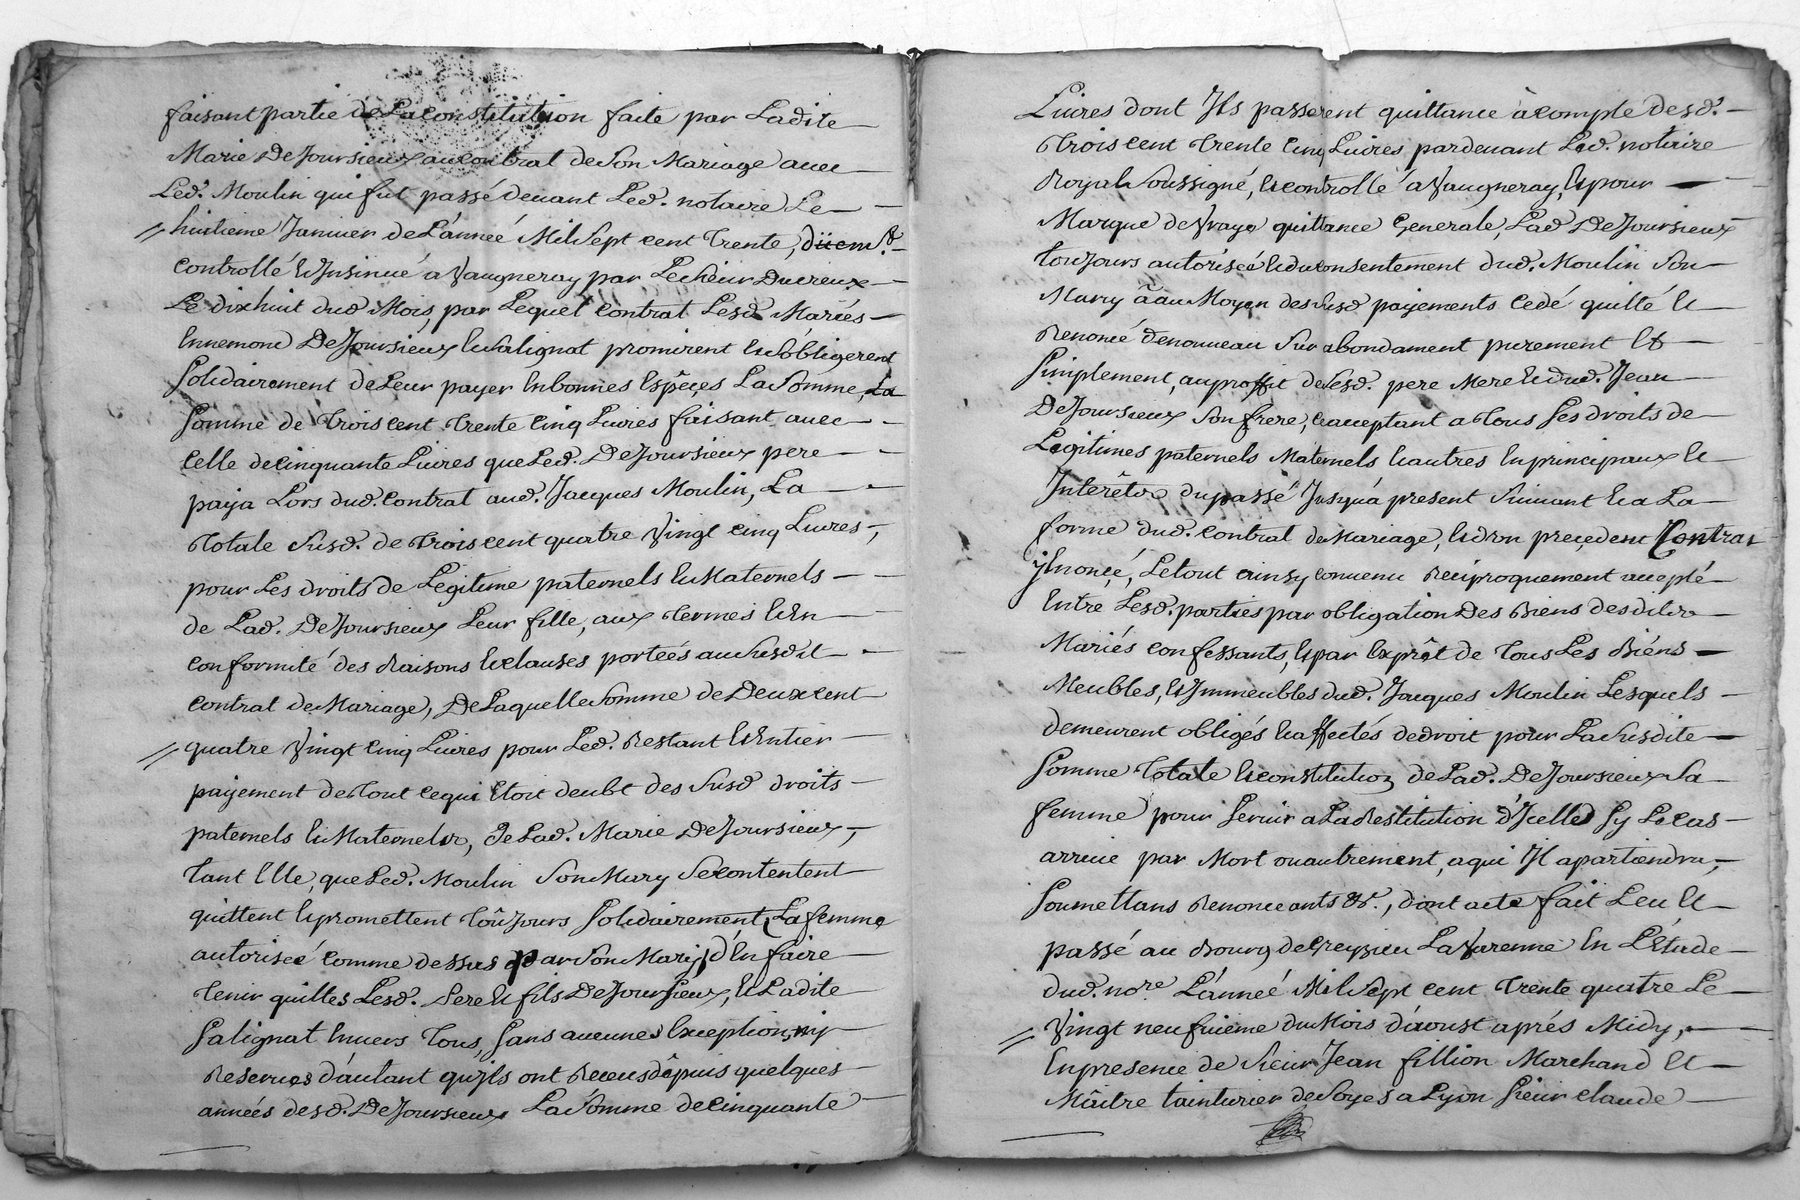 faisant partie de La constitution faite par Ladite
Marie DeJoursieux au contrat de Son Mariage avec
Led.t Moulin qui fut passé devant Led. notaire Le
huitieme Janvier de L'année Mil Sept cent Trente,
controllé et Insinué a Vaugneray par Le Sieur Ducreux
Le dixhuit dud Mois, par Lequel contrat Lesd. Mariés
Ennemond DeJoursieux et Salignat promirent et S'obligerent
Solidairement de Leur payer En bonnes Espêçes La Somme, La
Somme de Trois cent Trente Cinq Livres faisant avec
Celle de cinquante Livres que Led. DeJoursieux pere
paya Lors dud. contrat aud. Jacques Moulin, La
Totale Susd. de Trois cent quatre Vingt cinq Livres,
pour Les droits de Legitime paternels et Maternels
de Lad. DeJoursieux Leur fille, aux Termes et En
conformité des Raisons et clauses portéés au Susdit
contrat de Mariage, De Laquelle Somme de Deux cent
quatre Vingt Cinq Livres pour Led. Restant et Entier
payement de Tout ce qui Etoit deubt des Susd droits
paternels et Maternels, de Lad. Marie DeJoursieux,
Tant Elle, que Led. Moulin Son Mary Se contentent
quittent et promettent Toûjours Solidairement, La femme
autorisée comme dessus par Son Mary, d'En faire
Tenir quittes Lesd. Pere et fils DeJoursieux, et Ladite
Salignat Envers Tous, Sans aucunes Exception, ny
Reserves d'autant qu'jls ont Receus dêpuis quelques
années desd. DeJoursieux La Somme de Cinquante
Livres dont Jls passerent quittance à compte desd.
Trois cent Trente Cinq Livres pardevant Led. notaire
Royal Soussigné, et controllé a Vaugneray, et pour
Marque de Vraye quittance Generale, Lad DeJoursieux
Toujours autoriseé et du consentement dud. Moulin Son
Mary à au Moyen des Susd payements Cedé quitté et
Renoncé denouveau Sur abondament purement Et
Simplement, au proffit de Sesd. pere Mere et dud. Jean
DeJoursieux Son frere, ce acceptant a Tous Ses droits de
Legitimes paternels Maternels et autres En principaux et
Intérêts du passé Jusqu'a present Suivant et a La
forme dud. contrat de Mariage, et d'un preçedent Contrat
y Enonçé, Le tout ainsy convenu Reciproquement accepté
Entre Lesd. parties par obligation Des Biens desdits
Mariés confessants, et par Exprêt de Tous Les Biéns
Meubles, et Jmmeubles dud. Jacques Moulin Lesquels
demeurent obligés et affectés de droit pour La Susdite
Somme Totale et constitution de Lad. DeJoursieux Sa
femme pour Servir a La Restitution d'Jcelle Sy Le cas
arrive par Mort ou autrement, a qui Jl apartiendra,
Soumettans Renonceants &c., dont acte fait Leu Et
passé au Bourg de Creyzieu La Varenne En L'Etude
dud. no.re L'année Mil Sept cent Trente quatre Le
Vingt neufvieme du Mois d'aoust aprés Midy,
En presence de Sieur Jean fillion Marchand Et
Mâitre tainturier de Soyes a Lyon Sieur claude